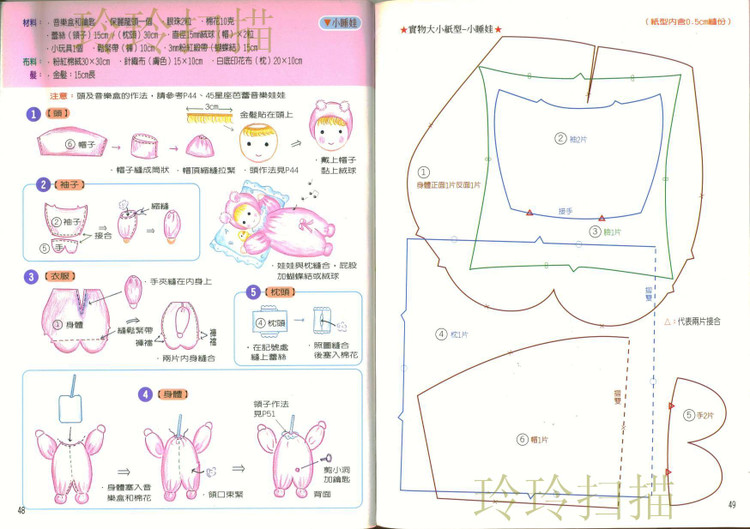 材料：．音樂盒和鑰匙 ．保麗龍頭一個 ．眼珠2粒 ．棉花10克
．蕾絲（領子）15cm／（枕頭）30cm ．直徑15mm絨球（帽）×2粒
．小玩具1個 ．鬆緊帶（褲）10cm ．3mm粉紅緞帶（蝴蝶結）15cm
布料：．粉紅棉絨30×30cm ．針織布（膚色）15×10cm ．白底印花布（枕）20×10cm
髮：．金髮：15cm長
▼小睡娃
玲玲扫描
注意：頭及音樂盒的作法，請參考P44、45星座芭蕾音樂娃娃
1【頭】
3cm
金髮貼在頭上
⑥帽子
．帽子縫成筒狀
．帽頂縮縫拉緊
．頭作法見P44
．戴上帽子
黏上絨球
2【袖子】
②袖子
⑤手
接合
縮縫
．娃娃與枕縫合，屁股
加蝴蝶結或絨球
3【衣服】
．手夾縫在內身上
①身體
縫鬆緊帶
褲襠
褲襠
．兩片內身縫合
5【枕頭】
④枕頭
．在記號處
縫上蕾絲
．照圖縫合
後塞入棉花
4【身體】
領子作法
見P51
．身體塞入音
樂盒和棉花
．頸口束緊
剪小洞
加鑰匙
背面
48
★實物大小紙型-小睡娃★
（紙型內含0.5cm縫份）
①
身體正面1片反面1片
②袖2片
接手
③臉1片
摺雙
△：代表兩片接合
④枕1片
摺雙
⑤手2片
⑥帽1片
玲玲扫描
49